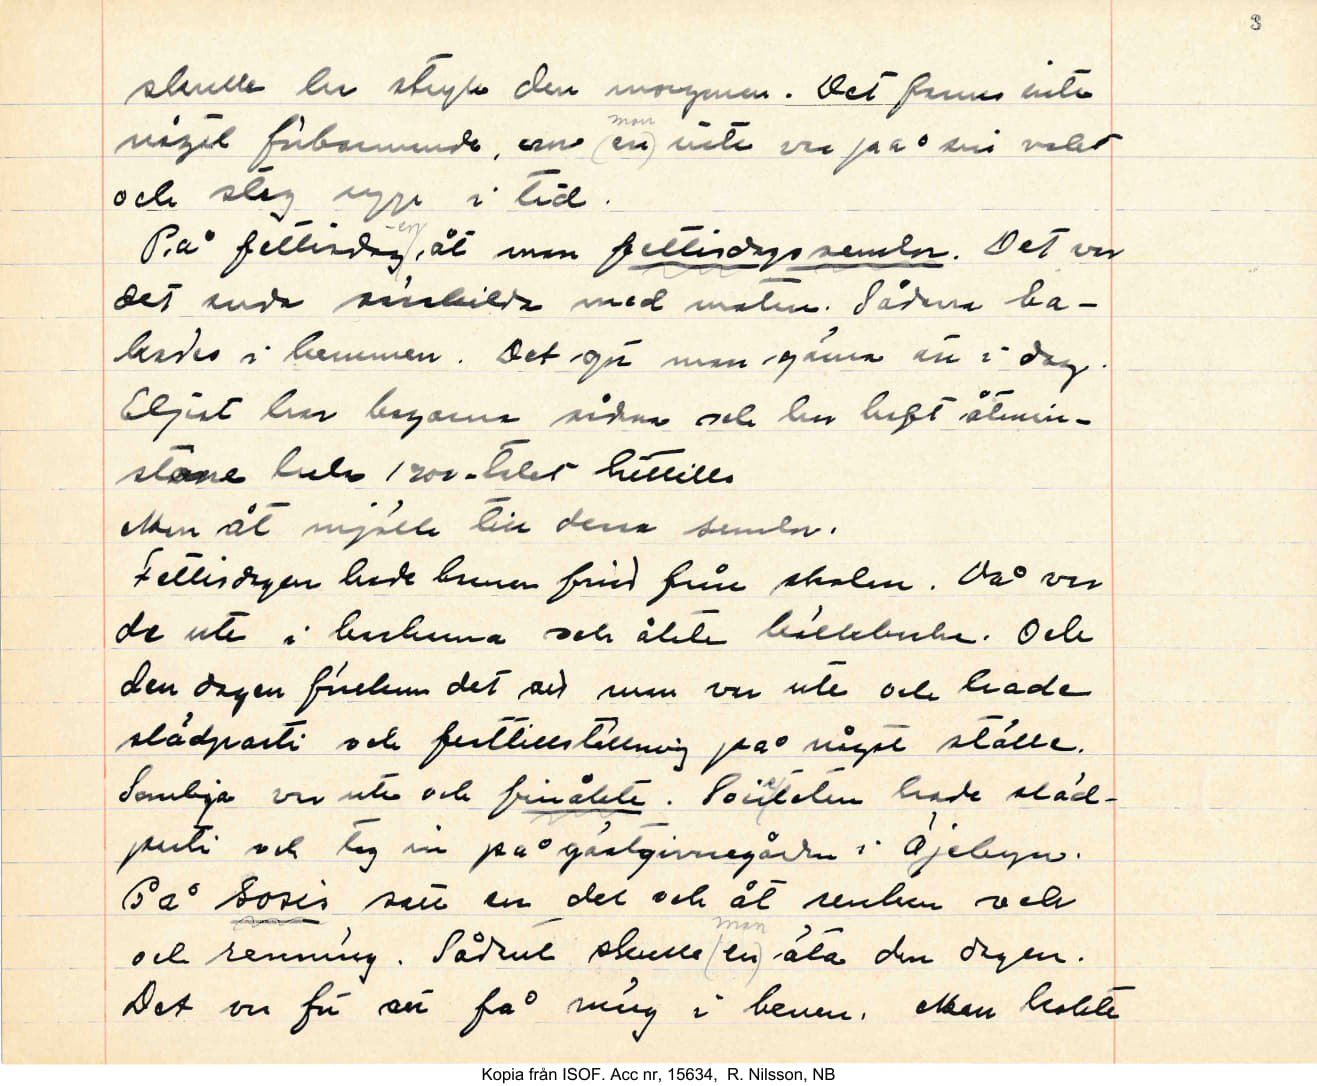 3
skulle ha stryk den morgonen. Det fanns inte
något förbarmande, om (en) man inte var på sin vakt
och steg upp i tid.
På fettisdag-en åt man fettisdagssemlor. Det var
det enda särskilda med maten. Sådana ba-
kades i hemmen. Det gör man gärna än i dag.
Eljest har bagarna sådana och har haft åtmin-
stone hela 1900-talet hittills
Man åt mjölk till dessa semlor.
Fettisdagen hade barnen fritt från skolan. Då var
de ute i backarna och åkte kälkbacke. Och
den dagen förekom det att man var ute och hade
slädparti och festtillställning på något ställe.
Somliga var ute och finåkte. Societeten hade släd-
parti och tog in på gästgivaregården i Öjebyn.
På Sosis satt en del och åt renben och
och renmärg. Sådant skulle (en) man äta den dagen.
Det var för att få märg i benen. Man kokte
Kopia från ISOF. Acc nr, 15634, R. Nilsson, NB